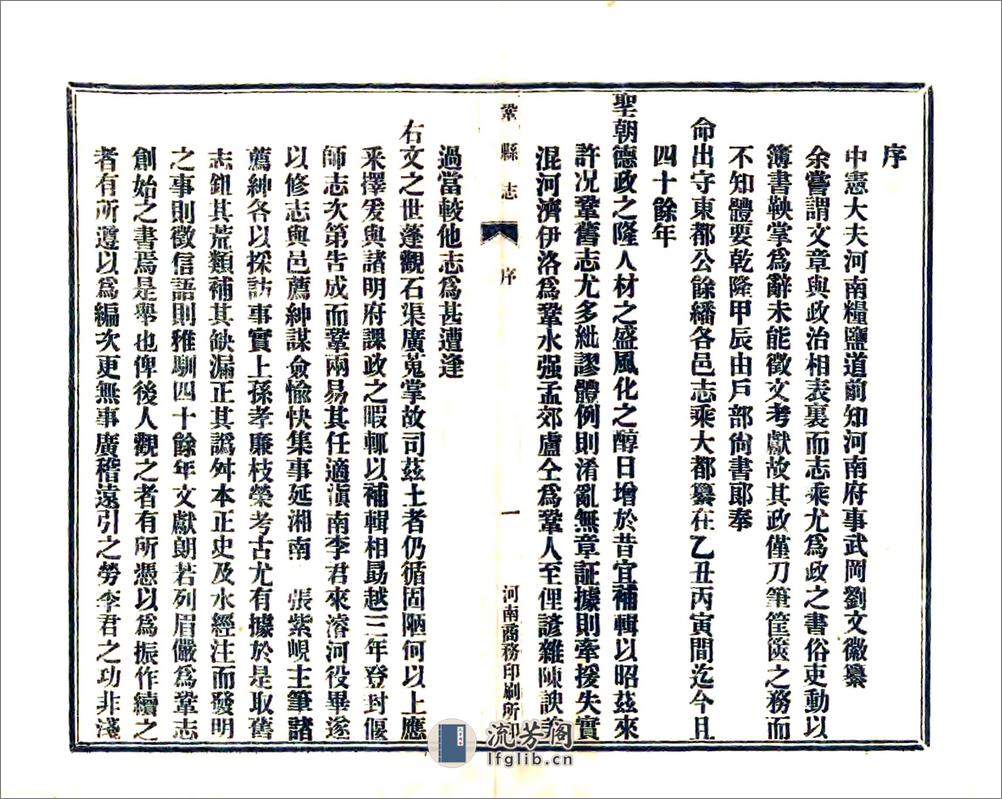 序
中憲大夫河南糧鹽道前知河南府事武岡劉文徽纂
余嘗謂文章與政治相表裏而志乘尤爲政之書俗吏動以
簿書鞅掌爲辭未能徵文考獻故其政僅刀筆筐篋之務而
不知體要乾隆甲辰由戶部尙書郎奉
命出守東都公餘繙各邑志乘大都纂在乙丑丙寅間迄今且
四十餘年
聖朝德政之隆人材之盛風化之醇日增於昔宜補輯以昭茲來
許况鞏舊志尤多紕謬體例則淆亂無章証據則牽援失實
混河濟伊洛爲鞏水强孟郊盧仝爲鞏人至俚諺雜陳諛
鞏縣志
序
一
河南商務印刷所印
過當較他志爲甚遭逢
右文之世蓬觀石渠廣蒐掌故司茲土者仍循固陋何以上應
釆擇爰與諸明府課政之暇輒以補輯相勗越三年登封偃
師志次第告成而鞏兩易其任適滇南李君來濬河役畢遂
以修志與邑薦紳謀僉愉快集事延湘南 張紫峴主筆諸
薦紳各以採訪事實上孫孝廉枝榮考古尤有據於是取舊
志鉏其荒類補其缺漏正其譌舛本正史及水經注而發明
之事則徵信語則雅馴四十餘年文獻朗若列眉儼爲鞏志
創始之書焉是舉也俾後人觀之者有所憑以爲振作續之
者有所遵以爲編次更無事廣稽遠引之勞李君之功非淺
流芳阁
lfglib.cn